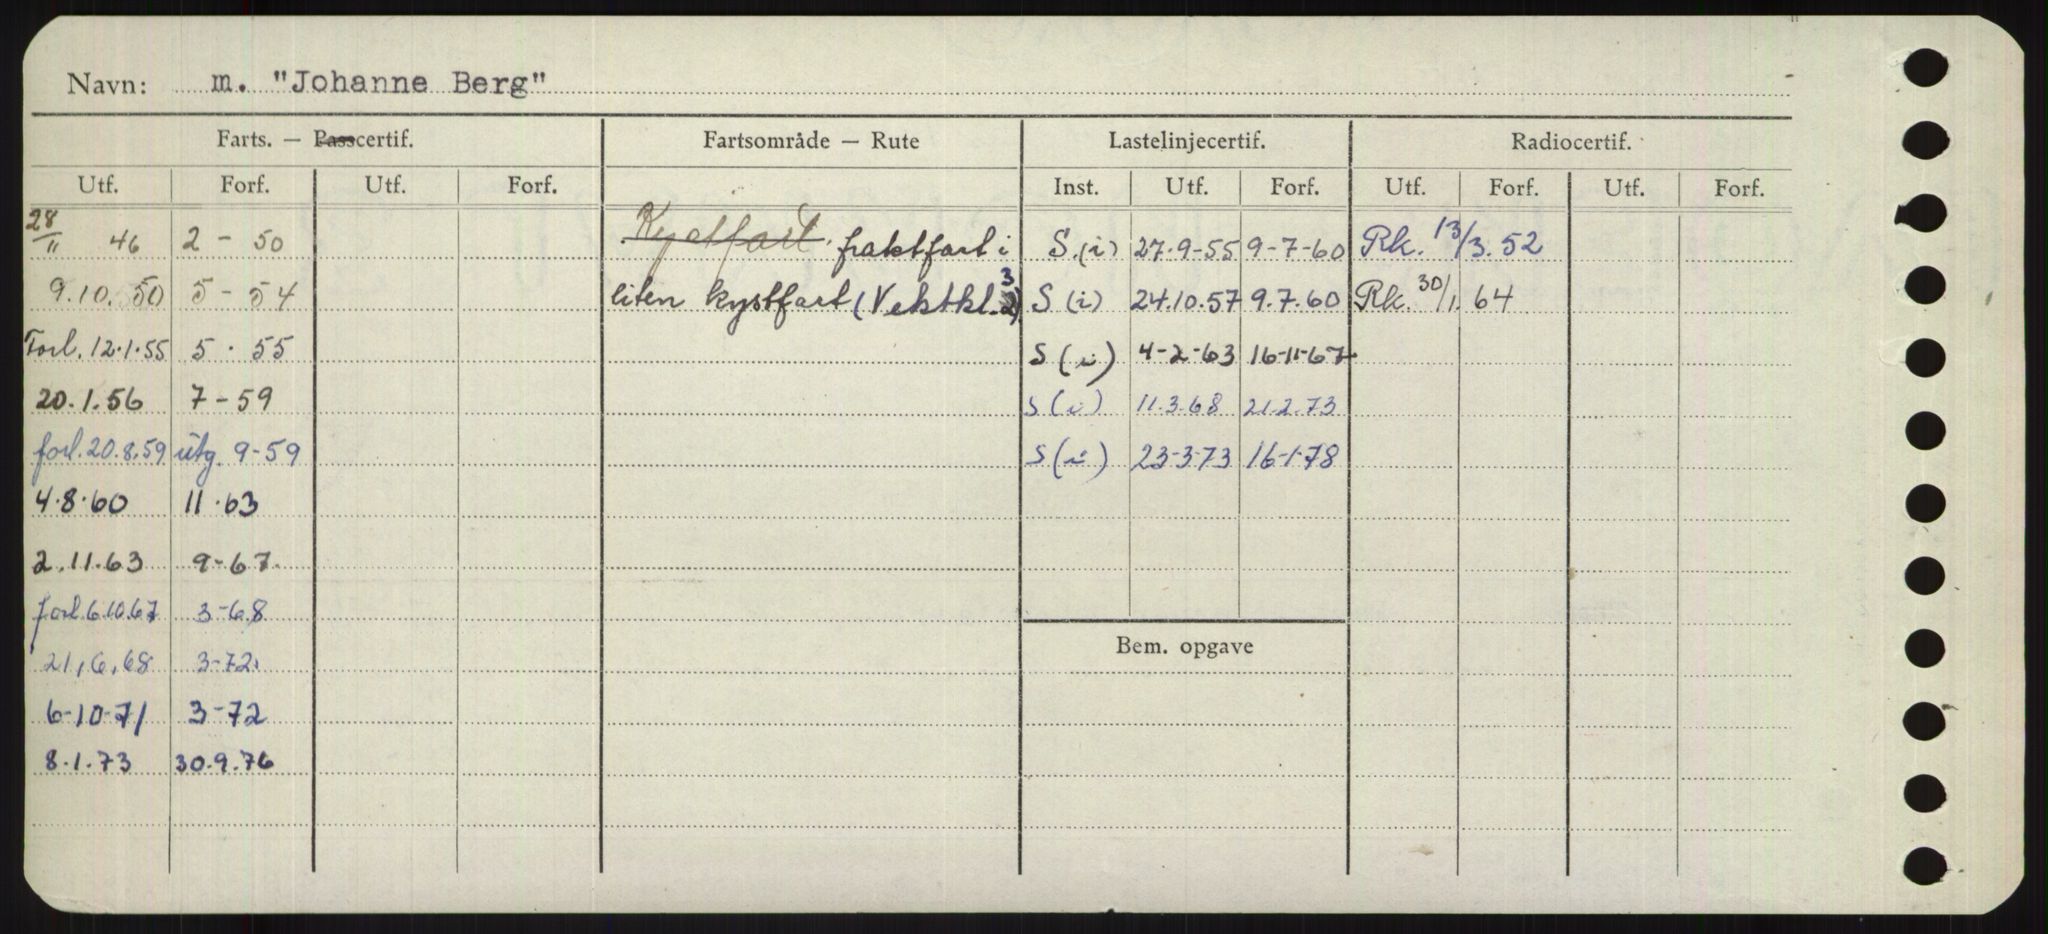 Navn: m. "Johanne Berg"
Farts. — Passcertif. Fartsområde — Rute Lastelinjecertif. Radiocertif.
Utf. Forf. Utf. Forf. Inst. Utf. Forf. Utf. Forf. Utf. Forf.
28/11 46 2 - 50 Kystfart. fraktfart i S.(i) 27.9-55 9-7-60 Rk. 13/3. 52
9.10.50 5 - 54 liten kystfart (Vektkl. 2) 3 S (i) 24.10.57 9.7.60 Rk. 30/1. 64
Forl. 12.1.55 5 . 55 S (i) 4-2-63 16-11-67
20.1.56 7 - 59 S (i) 11.3.68 21.2.73
forl. 20.8.59 utg. 9-59 S (i) 23-3-73 16-1-78
4.8.60 11.63
2.11.63 9-67.
forl. 6.10.67 3-68
Bem. opgave
21.6.68 3-72.
6-10-71 3-72
8.1.73 30.9.76